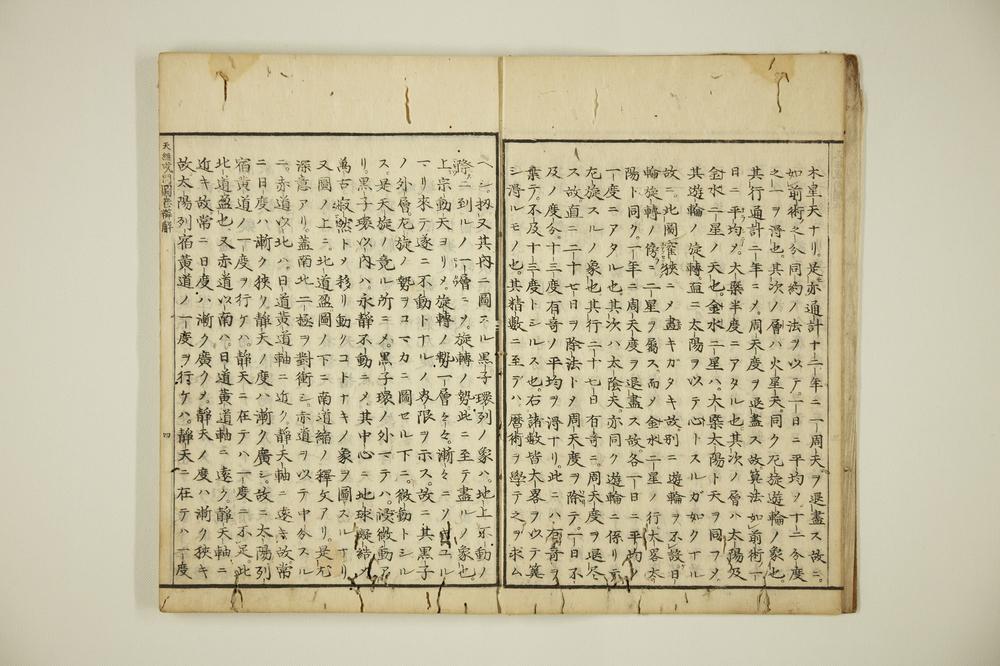 木星天ナリ。是亦通計十二年ニ一周天ヲ退盡ス故ニ。
如前術之分同約ノ法ヲ以テ。一日ニ平均ノ十二分度
之一ヲ得也。其次ノ層ハ火星天。同ク左旋遊輪ノ象也。
其行通計二年ニ〆。周天度ヲ退盡ス故算法如前術一
日ニ平均〆。大槩半度ニアタル也其次ノ層ハ太陽及
金水二星ノ天也。金水二星ハ。大槩太陽ト天ヲ同ヲ〆。
其遊輪ノ旋轉。皿ニ太陽ヲ以テ心トスルガ如クナル
故ニ。此圖窄狹ニ〆盡キガタキ故。別ニ遊輪ヲ不設日
輪旋轉ノ傍ニ二星ヲ屬ス而〆金水二星ノ行大畧太
陽ト同ク。一年ニ周天度ヲ退盡ス故。各一日ニ平均〆
一度ニアタル也。其次ハ太陰天。亦同ク遊輪ニ係リテ
左旋スルノ象也。其行二十七日有奇ニ。周天度ヲ退尽
ス故。直ニ二十七日ヲ除法ト〆周天度ヲ除テ。一日不
及ノ度分。十三度有奇ノ平均ヲ得ナリ。此ニハ有奇ヲ
棄テ。不及十三度トシルス也。右諸數皆大畧ヲ以テ算
シ得ルモノ也。其精數ニ至テハ。暦術ヲ學テ之ヲ求ム
ヘシ扨又其内ニ圖スル黒子環列ノ象ハ。地上不動ノ
際ニ到ルノ一層ニ〆。旋轉ノ勢此ニ至テ盡ルノ象也。
上宗動天ヨリ〆。旋轉ノ勢一層々々。漸々ニ〆
マリ來テ遂ニ不動トナルノ界限ヲ示ス。故ニ其黒子
ノ外層。左旋ノ勢ヲコマカニ圖セル下ニ。微動トシル
ス。是天旋ノ竟ル所ニ〆。黒子環ノ外マテハ。浸微動ア
リ。黒子環以内ハ永静不動ニ〆其中心ニ地球凝結〆。
萬古寂然ト〆移リ動クコトナキノ象ヲ圖スルナリ
又圖ノ上ニ。北道盈圖ノ下ニ南道縮ノ釋文アリ。是尤
深意アリ。蓋南北二極ヲ對衝シ。赤道ヲ以テ中分スル
ニ。赤道以北ハ。日道黄道軸ニ近ク。静天軸ニ遠キ故常
ニ日度ハ漸ク狹ク静天ノ度ハ漸ク廣シ。故ニ太陽列
宿黄道ノ一度ヲ行ケハ。静天ニ在テハ一度ニ不足此
北道盈也。又赤道以南ハ。日道黄道軸ニ遠ク。静天軸ニ
近キ故常ニ日度ハ漸ク廣ク〆。静天ノ度ハ漸ク狹キ
故太陽列宿黄道ノ一度ヲ行ケハ。静天ニ在テハ一度
四